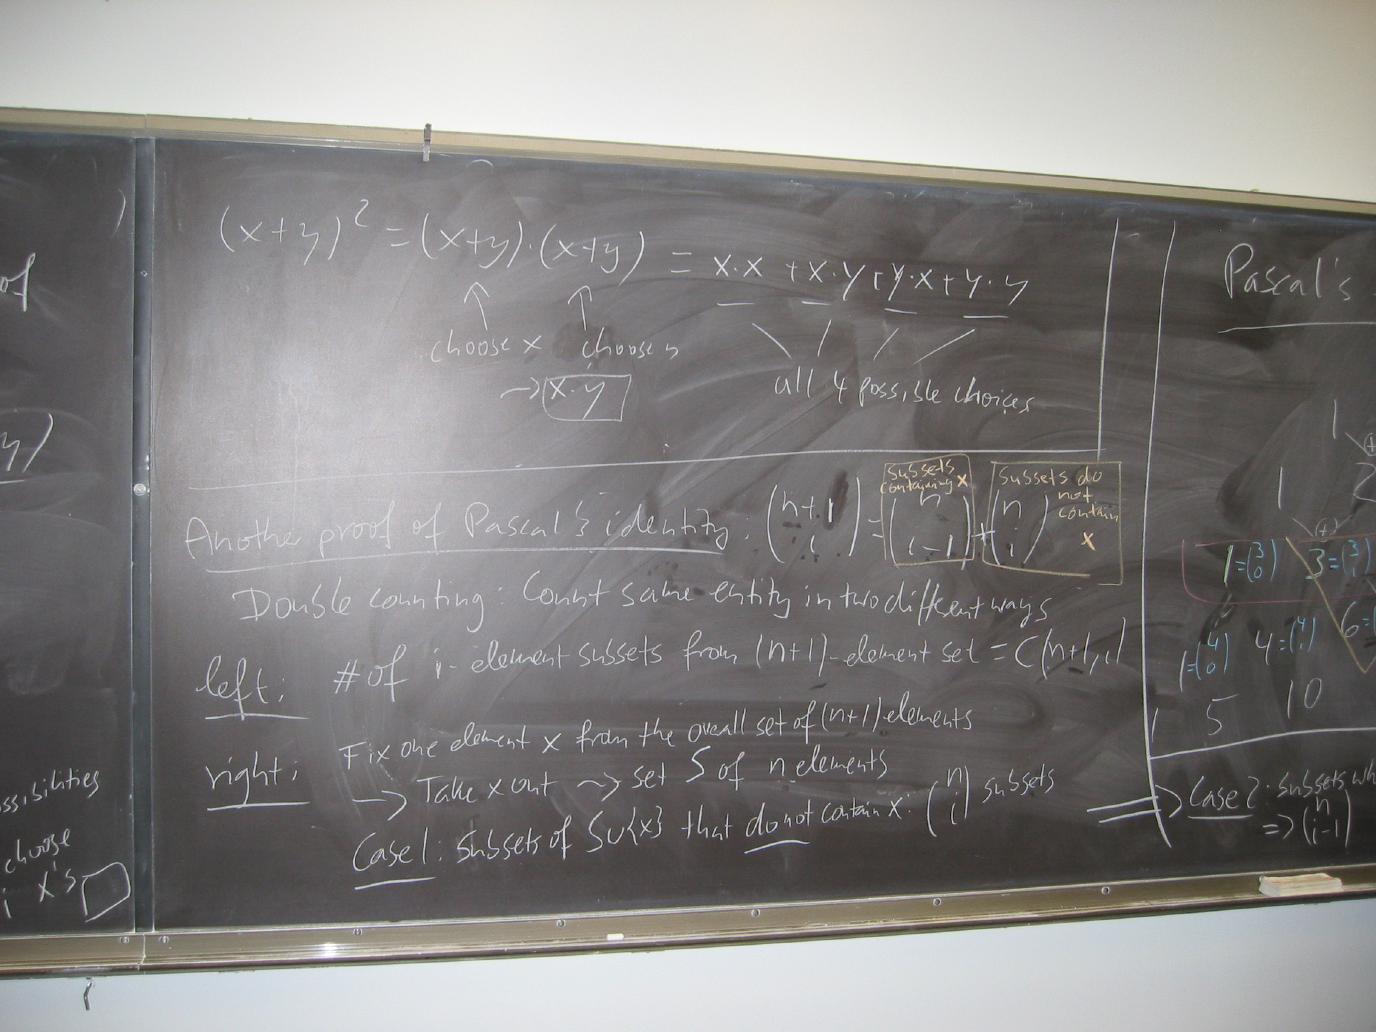 )
of
y)
ssibilities
choose
i x's
(x+y)² = (x+y)·(x+y) = x·x + x·y + y·x + y·y
choose x choose y
→ x·y
all 4 possible choices
Another proof of Pascal's identity: (n+1 i) = (n i-1) + (n i)
subsets containing x
subsets do not contain x
Double counting: Count same entity in two different ways
left: # of i-element subsets from (n+1)-element set = C(n+1,i)
right: Fix one element x from the overall set of (n+1) elements
→ Take x out ~> set S of n elements
Case 1: subsets of S∪{x} that do not contain x: (n i) subsets
Pascal's
1
(+)
1 2
(+)
1=(3 0) 3=(3 1)
1=(4 0) 4=(4 1) 6=(
1 5 10
⇒ Case 2: subsets wh
⇒ (n i-1)